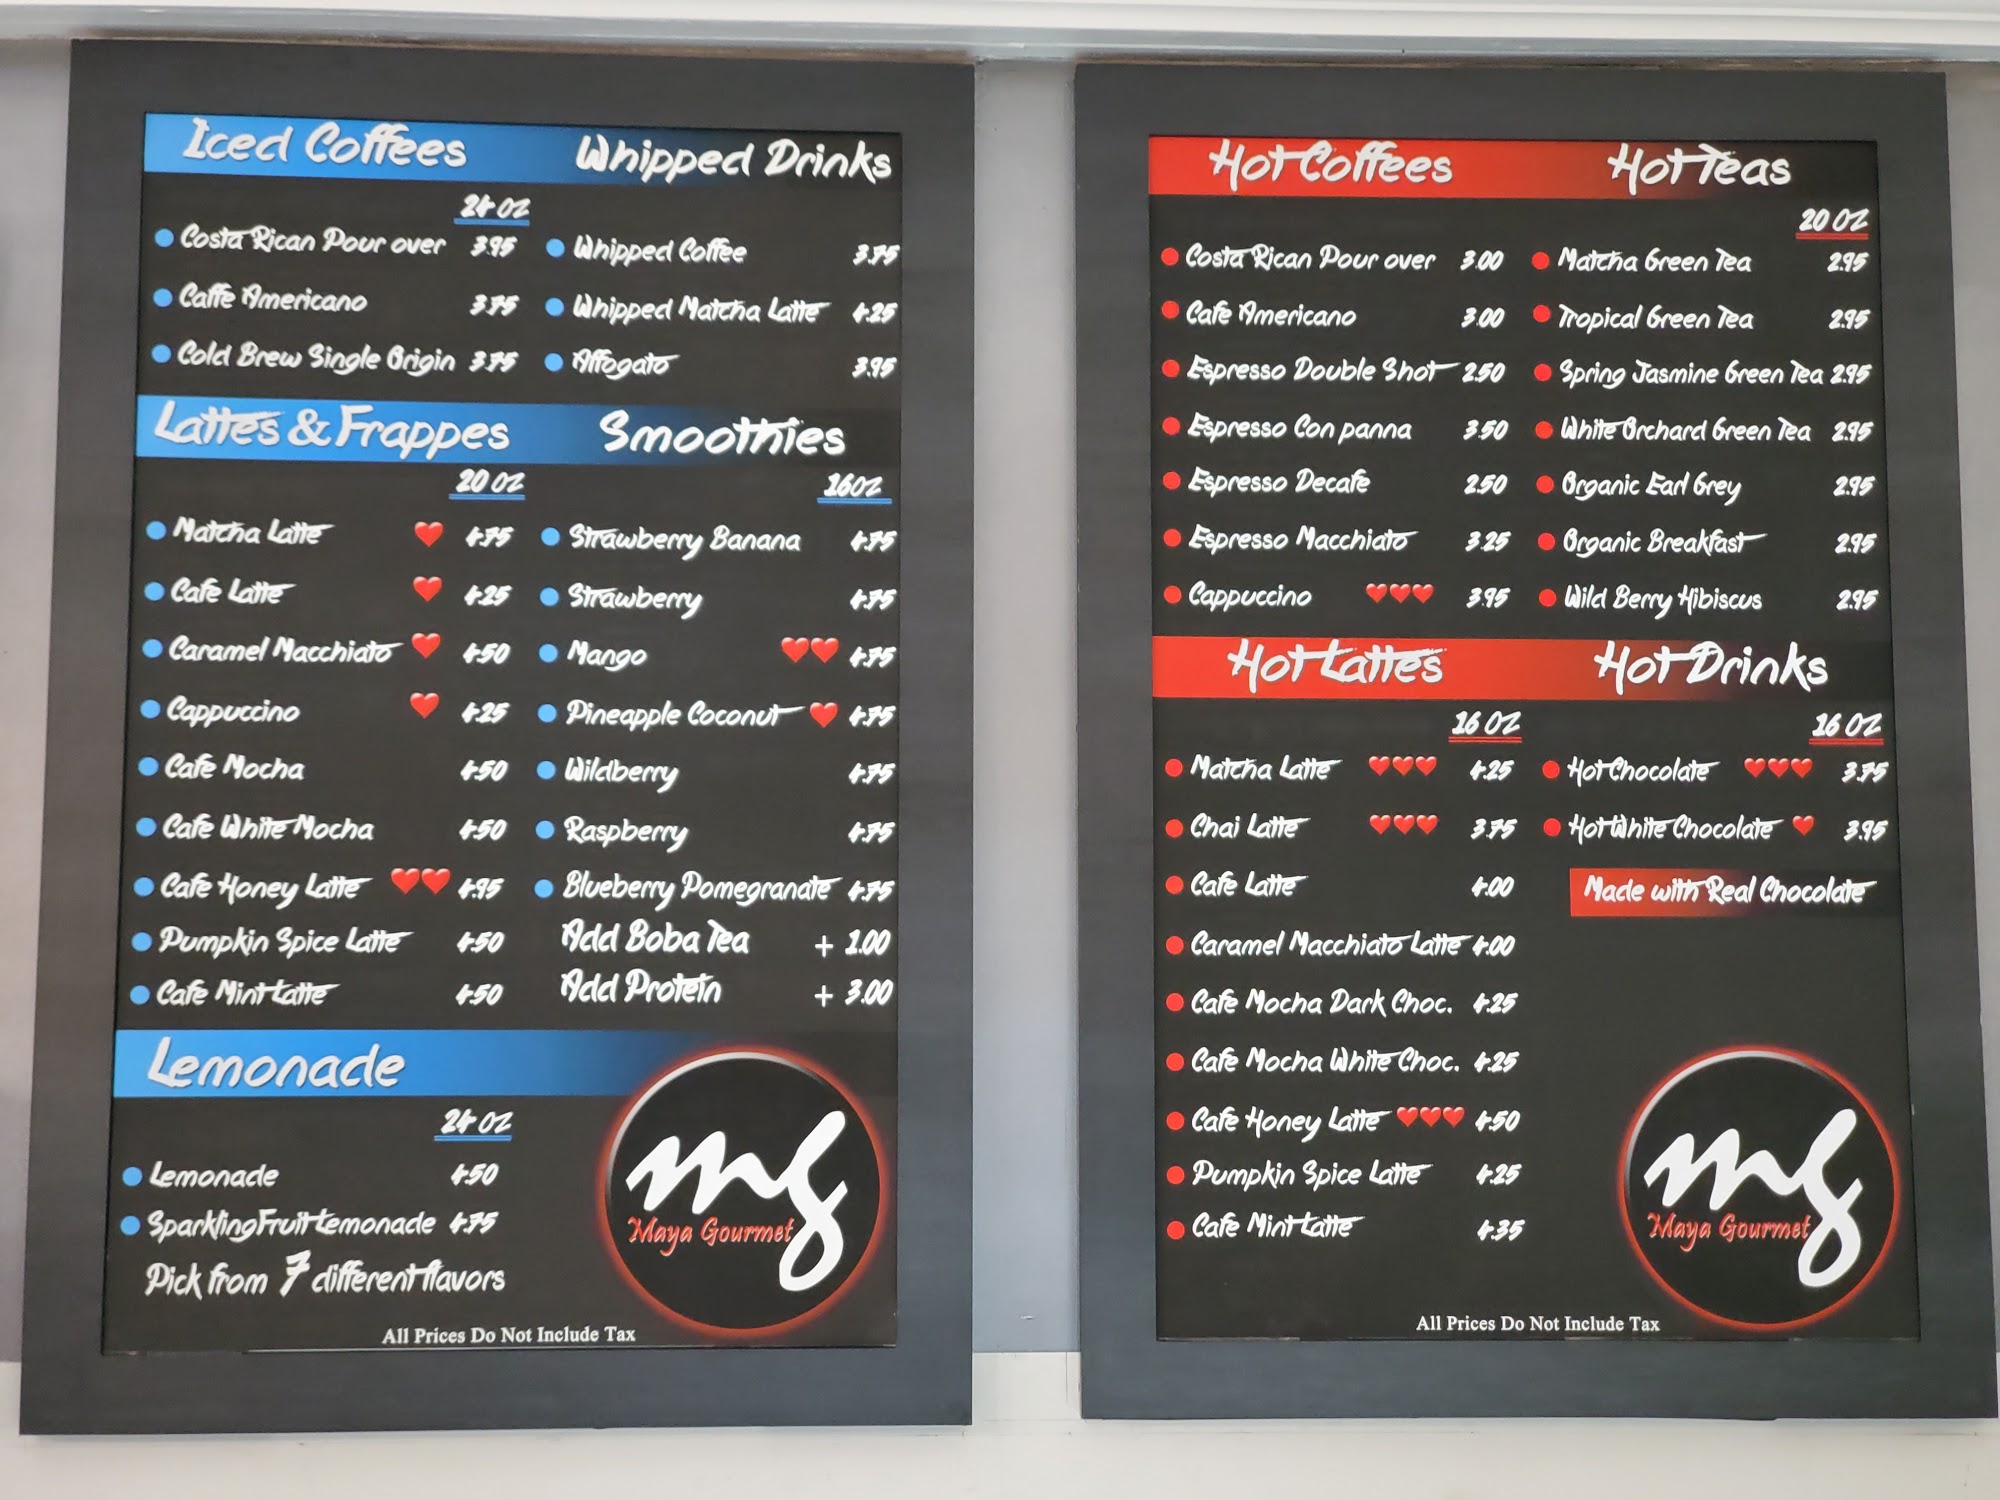 Iced Coffees
24 OZ
Costa Rican Pour over 3.95
Caffe Americano 3.75
Cold Brew Single Origin 3.75
Whipped Drinks
Whipped Coffee 3.75
Whipped Matcha Latte 4.25
Affogato 3.95
Lattes & Frappes
20 OZ
Matcha Latte ❤ 4.75
Cafe Latte ❤ 4.25
Caramel Macchiato ❤ 4.50
Cappuccino ❤ 4.25
Cafe Mocha 4.50
Cafe White Mocha 4.50
Cafe Honey Latte ❤❤ 4.95
Pumpkin Spice Latte 4.50
Cafe Mint Latte 4.50
Smoothies
16OZ
Strawberry Banana 4.75
Strawberry 4.75
Mango ❤❤ 4.75
Pineapple Coconut ❤ 4.75
Wildberry 4.75
Raspberry 4.75
Blueberry Pomegranate 4.75
Add Boba Tea + 1.00
Add Protein + 3.00
Lemonade
24 OZ
Lemonade 4.50
Sparkling Fruit Lemonade 4.75
Pick from 7 different flavors
mg
Maya Gourmet
All Prices Do Not Include Tax
Hot Coffees
Costa Rican Pour over 3.00
Cafe Americano 3.00
Espresso Double Shot 2.50
Espresso Con panna 3.50
Espresso Decafe 2.50
Espresso Macchiato 3.25
Cappuccino ❤❤❤ 3.95
Hot Teas
20 OZ
Matcha Green Tea 2.95
Tropical Green Tea 2.95
Spring Jasmine Green Tea 2.95
White Orchard Green Tea 2.95
Organic Earl Grey 2.95
Organic Breakfast 2.95
Wild Berry Hibiscus 2.95
Hot Lattes
16 OZ
Matcha Latte ❤❤❤ 4.25
Chai Latte ❤❤❤ 3.75
Cafe Latte 4.00
Caramel Macchiato Latte 4.00
Cafe Mocha Dark Choc. 4.25
Cafe Mocha White Choc. 4.25
Cafe Honey Latte ❤❤❤ 4.50
Pumpkin Spice Latte 4.25
Cafe Mint Latte 4.35
Hot Drinks
16 OZ
Hot Chocolate ❤❤❤ 3.75
Hot White Chocolate ❤ 3.95
Made with Real Chocolate
mg
Maya Gourmet
All Prices Do Not Include Tax